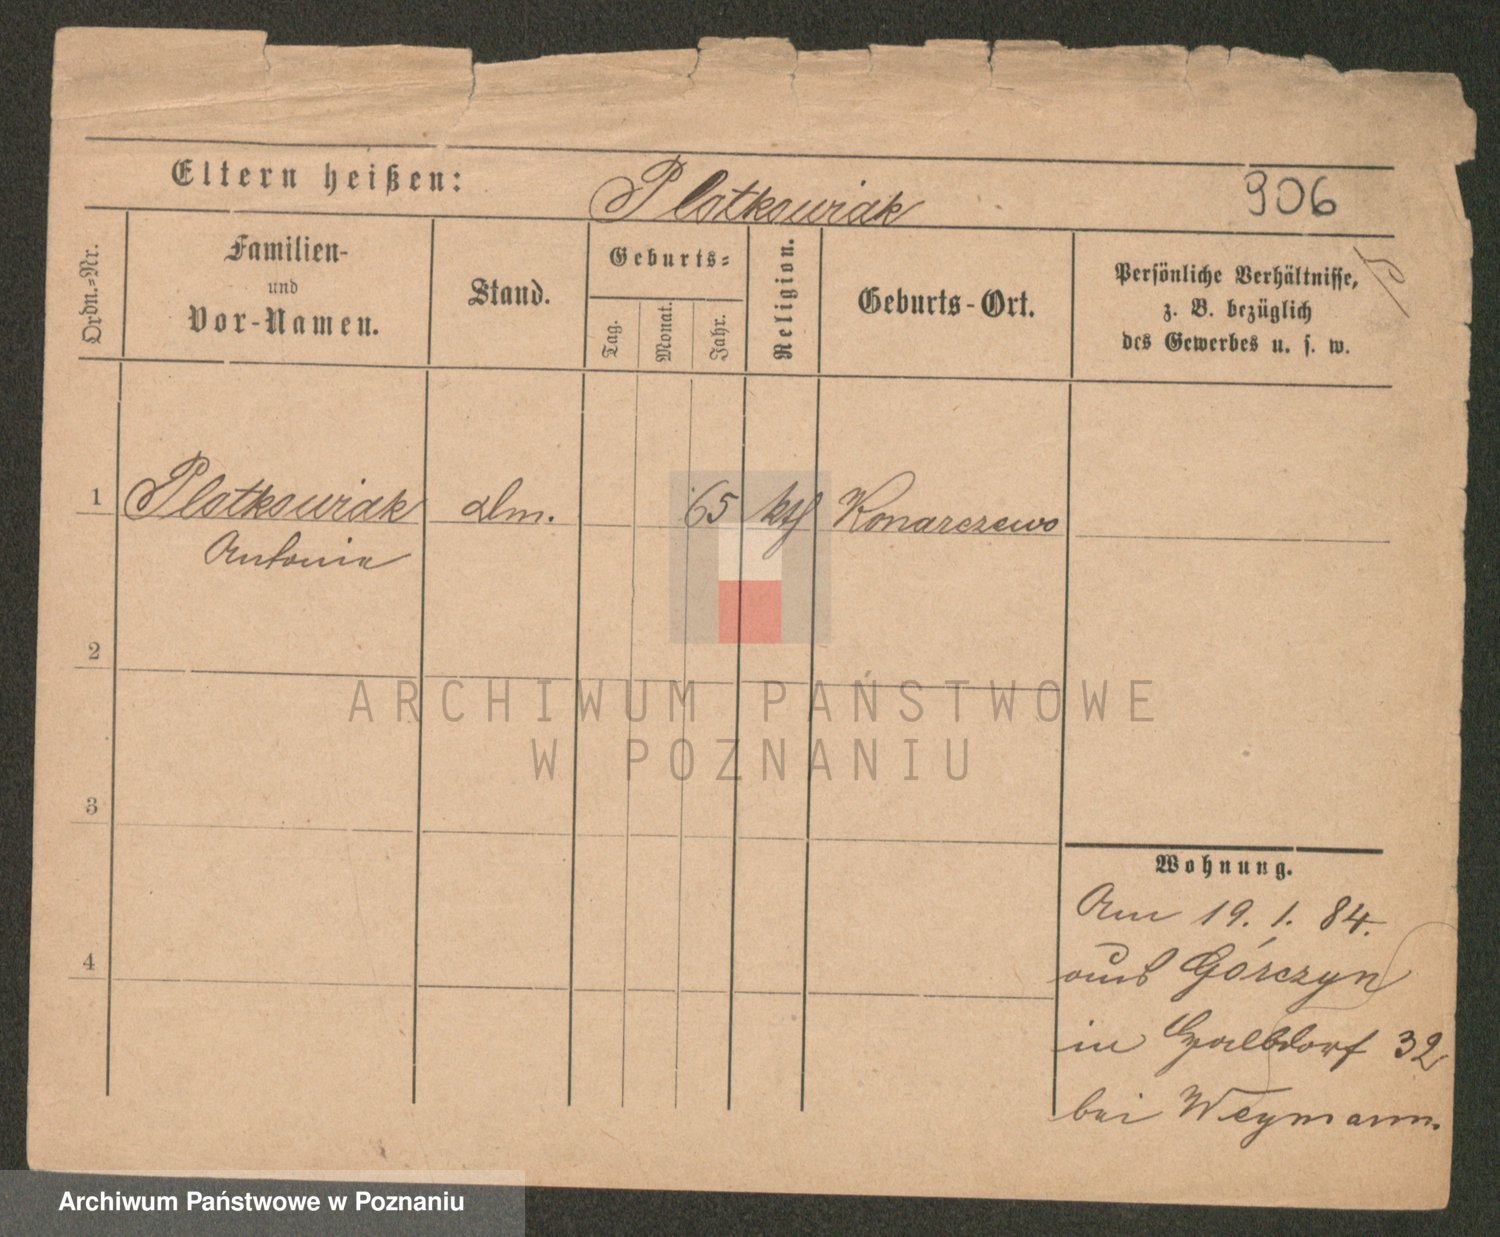 Eltern heißen: Plotkowiak 906
Ordn.-Nr.
Familien-
und
Vor-Namen.
Stand.
Geburts-
Tag.
Monat.
Jahr.
Religion.
Geburts-Ort.
Persönliche Verhältnisse,
z. B. bezüglich
des Gewerbes u. s. w.
1 Plotkowiak dm. 65 kth Konarczewo
Antonie
2
3
4
Wohnung.
Am 19. 1. 84.
aus Górczyn
in 32
bei Weymann.
ARCHIWUM PAŃSTWOWE
W POZNANIU
Archiwum Państwowe w Poznaniu